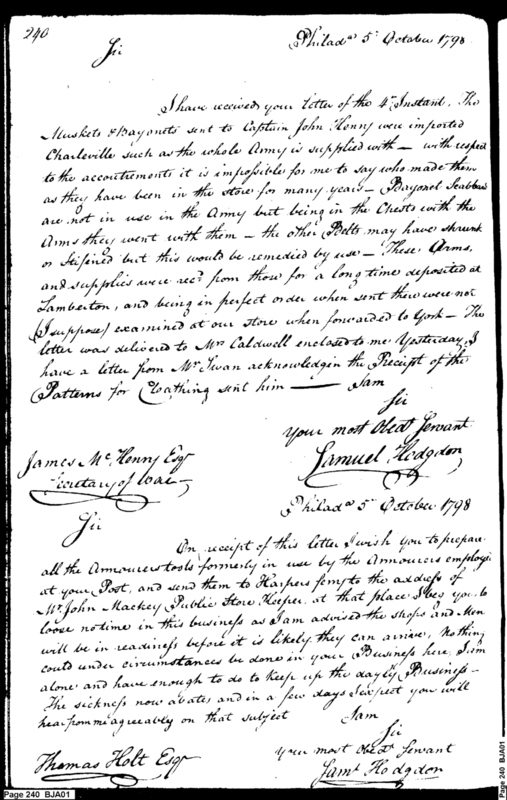 240
Philada 5th October 1798
Sir
I have received your letter of the 4th Instant. The
Muskets & Bayonets sent to Captain John Henry were imported
Charleville such as the whole Army is supplied with — with respect
to the accoutrements it is impossible for me to say who made them
as they have been in the store for many years — Bayonet Scabbards
are not in use in the Army but being in the Chests with the
Arms they went with them — the other Belts may have shrunk
or stifined but this would be remedied by use — These Arms,
and supplies were recd from those for a long time deposited at
Lamberton, and being in perfect order when sent there were not
(I suppose) examined at our store when forwarded to York — The
letter was delivered to Mrs Caldwell enclosed to me Yesterday, I
have a letter from Mr Swan acknowledgin the Receipt of the
Patterns for Cloathing sent him — I am
Sir
Your most Obedt Servant
Samuel Hodgdon
James Mc Henry Esqr
Secretary of War
Philada 5th October 1798
Sir
On receipt of this letter I wish you to prepare
all the Armourers tools formerly in use by the Armourers employd
at your Post, and send them to Harpers ferry to the address of
Mr John Mackey Public Store Keeper, at that place I beg you to
loose no time in this business as I am advised the shops and Men
will be in readiness before it is likely they can arrive, Nothing
could under circumstances be done in your Business here, I am
alone and have enough to do to keep up the dayly Business —
The sickness now abates and in a few days I expect you will
hear from me agreeably on that subject I am
Sir
Your most Obedt Servant
Saml Hodgdon
Thomas Holt Esqr
Page 240 BJA01
Page 240 BJA01